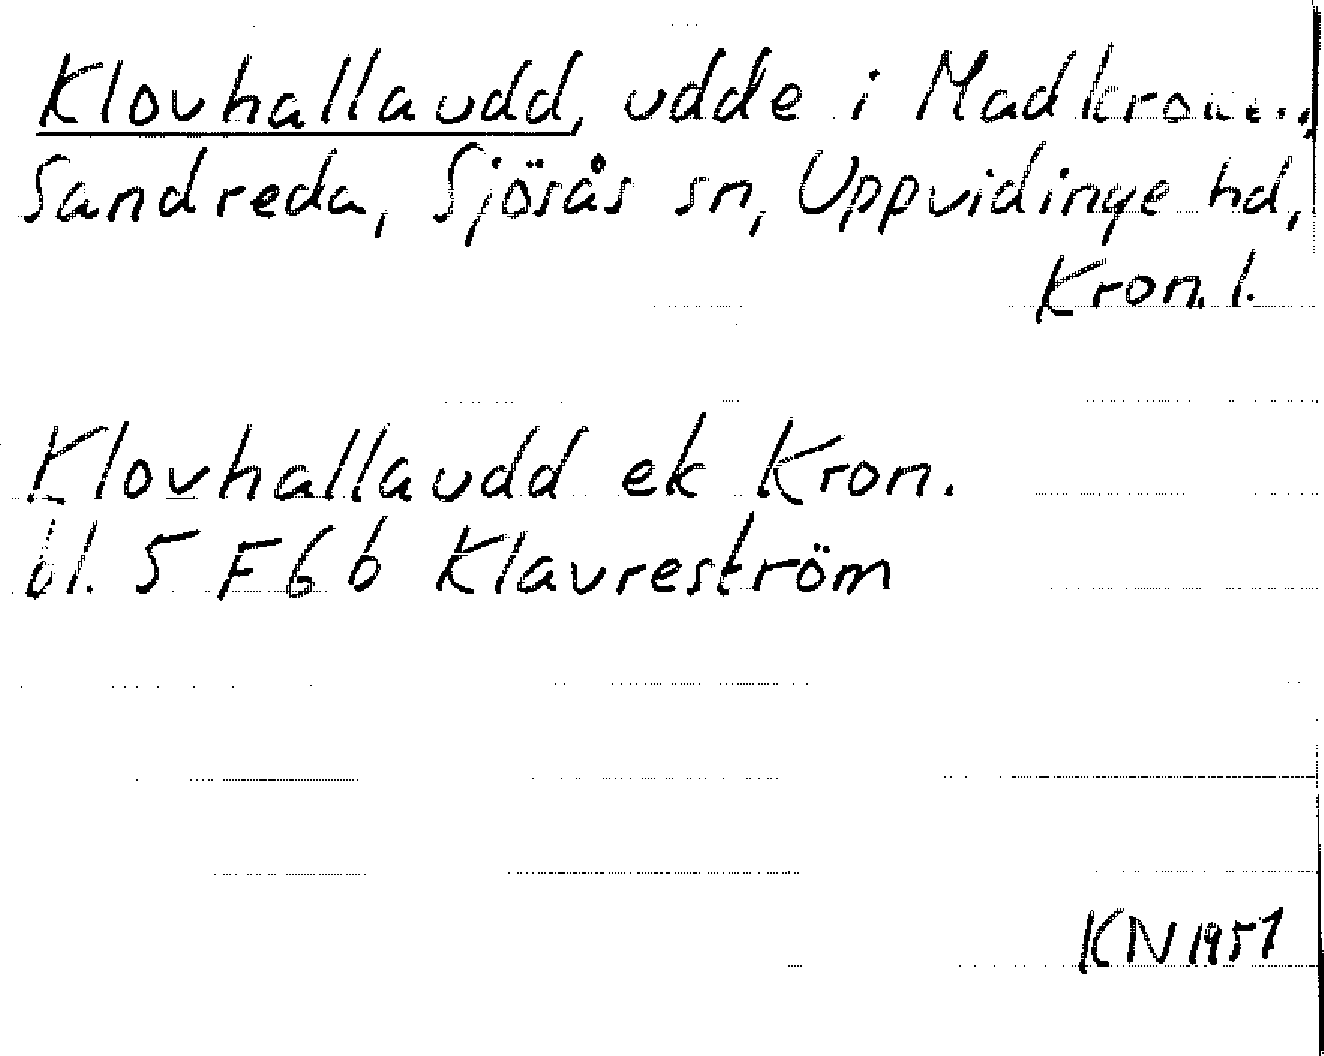 Klovhallaudd, udde i
Sandreda, Sjösås sn, Uppvidinge hd,
Kron. l.
Klovhallaudd ek Kron.
bl. 5 F 6 b Klavreström
KN 1951